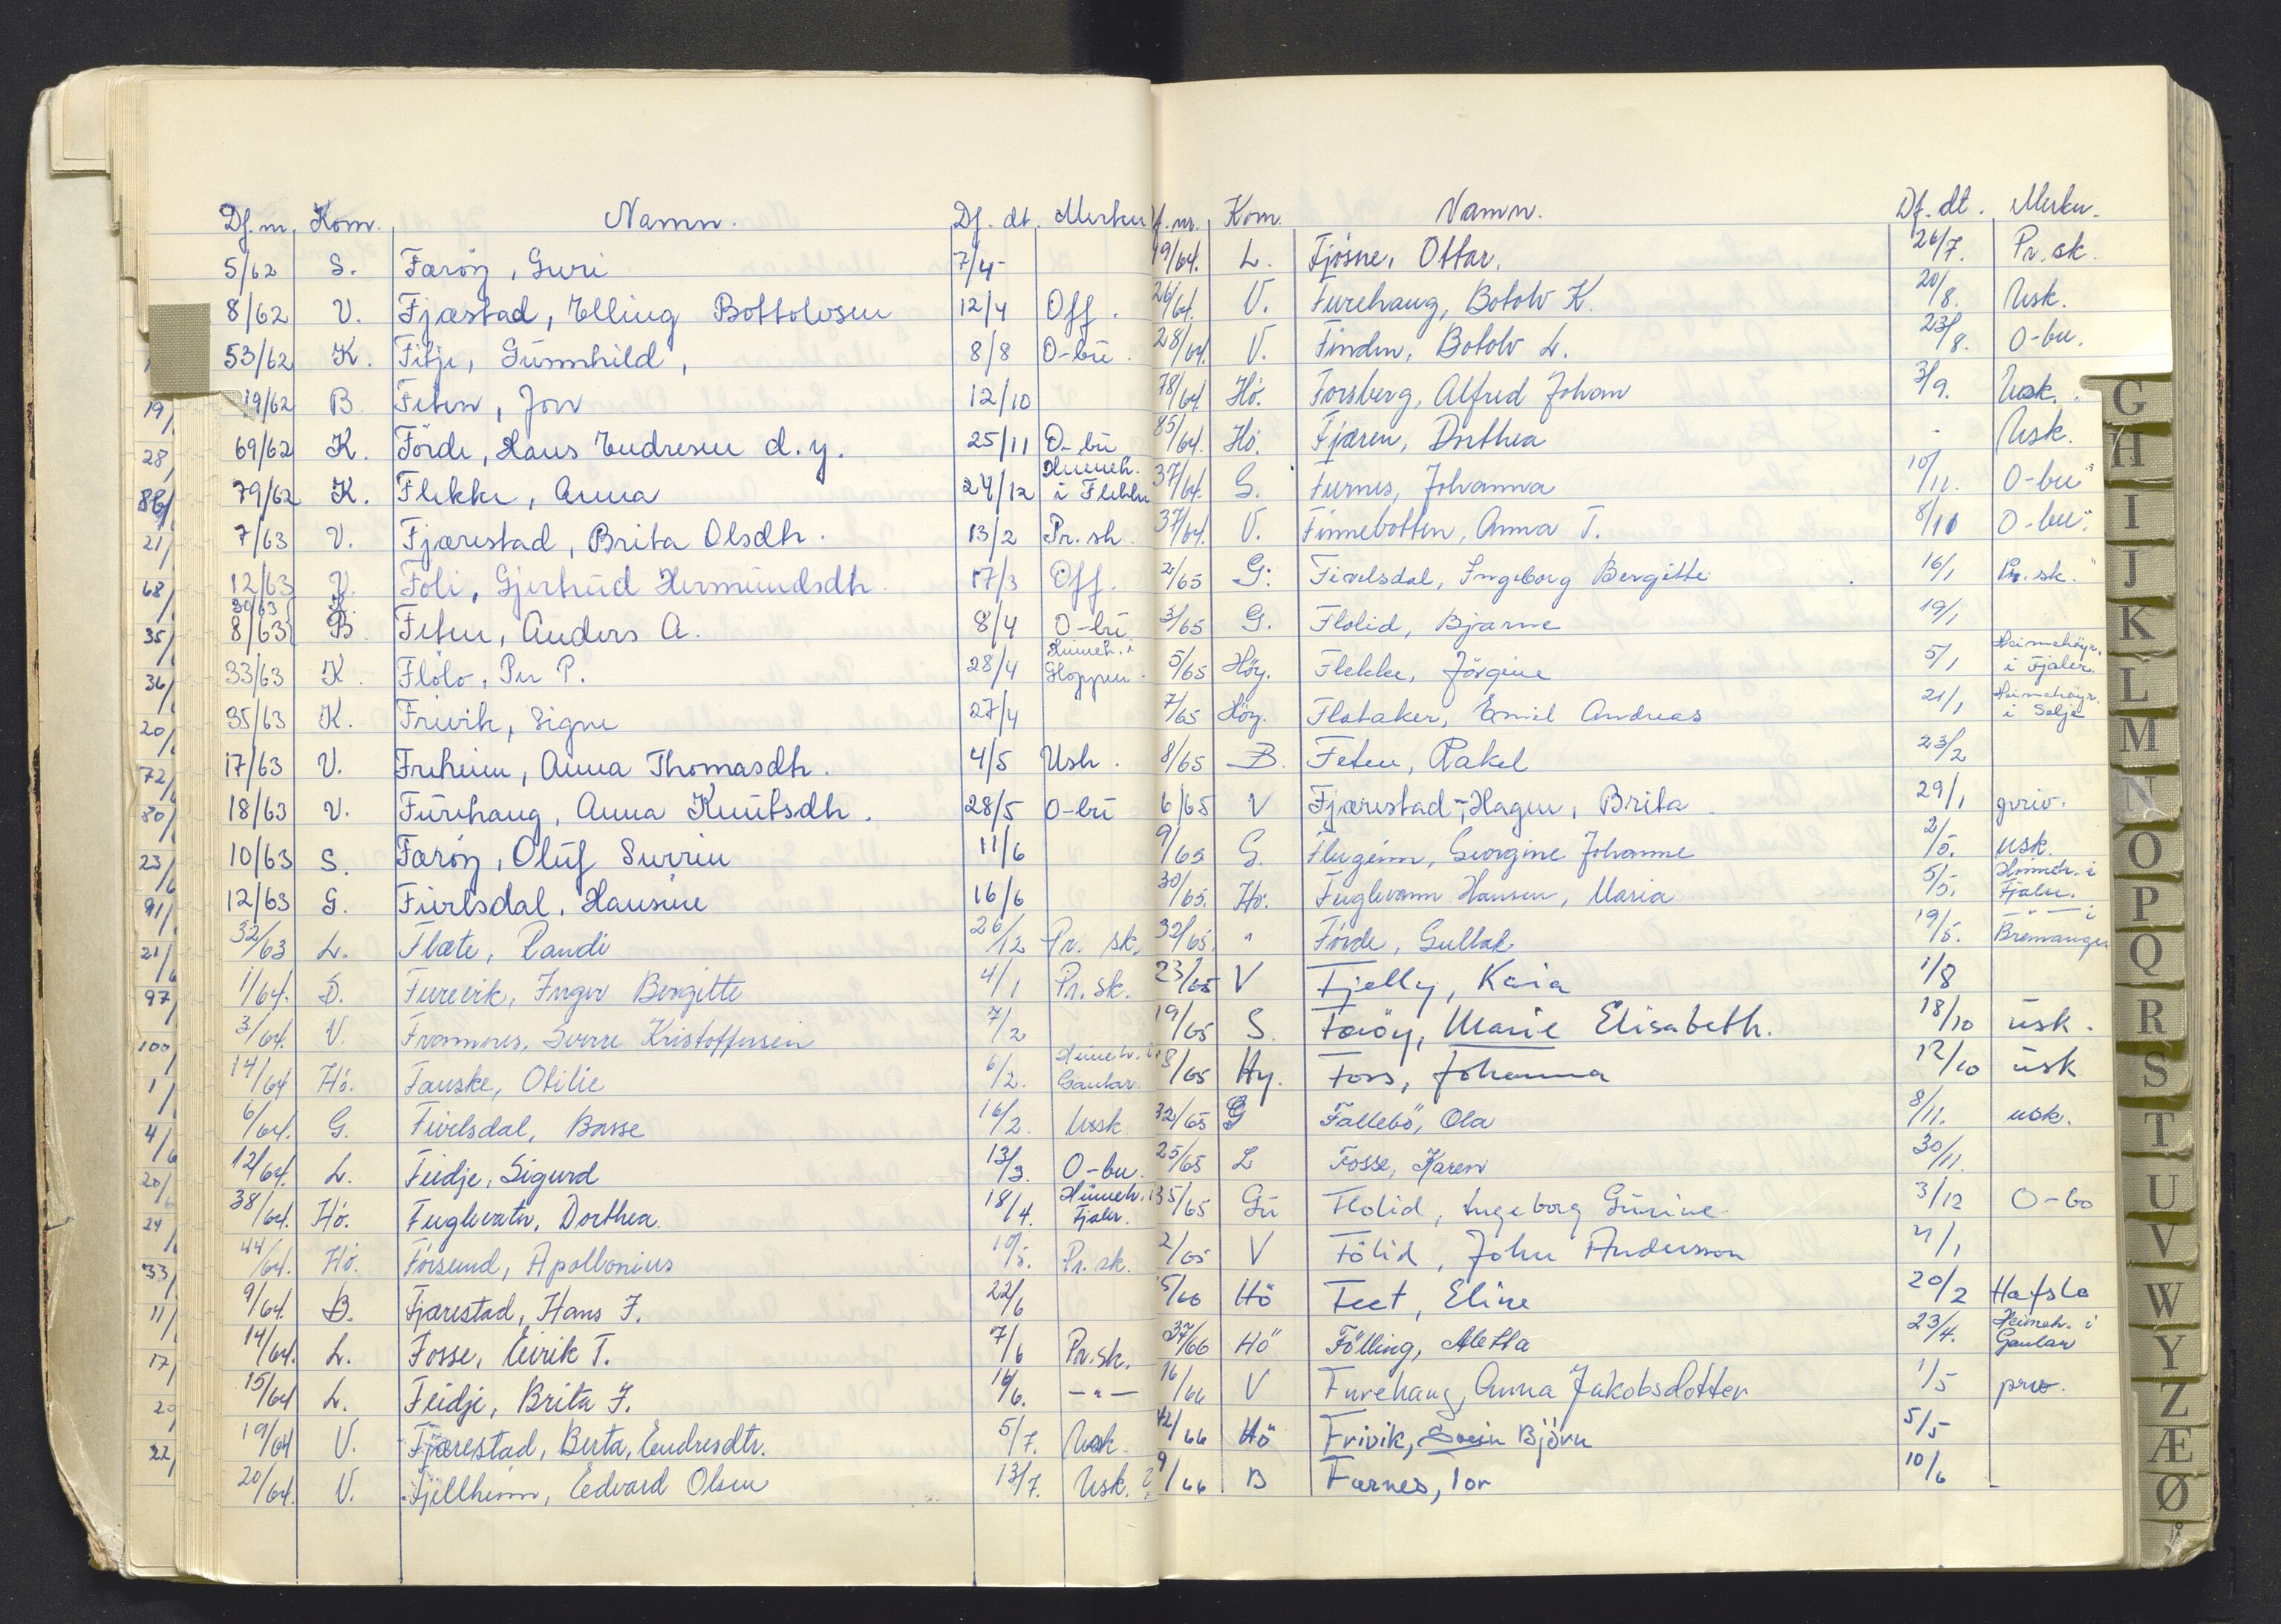 Df. nr. Kom. Namn. Df. dt. Merkn
5/62 S. Færöy, Guri 7/4
8/62 V. Fjæstad, Elling Bottolvsen 12/4 Off.
53/62 K. Fitje, Gunnhild, 8/8 O-bu.
19/62 B. Feten, Jon 12/10
69/62 K. Förde, Hans Endresen d. y. 25/11 O-bu
79/62 K. Flekke, Anna 24/12 Heimeh. i Flekke
7/63 V. Fjærestad, Brita Olsdtr. 13/2 Pr. sk.
12/63 V. Foli, Gjertrud Hermundsdtr. 17/3 Off.
30/63 K.
8/63 B. Feten, Anders A. 8/4 O-bu
33/63 K. Flölo, Per P. 28/4 Heimeh. i Hoppen.
35/63 K. Frivik, Signe 27/4
17/63 V. Freheim, Anna Thomasdtr. 4/5 Usk.
18/63 V. Furehaug, Anna Knutsdtr. 28/5 O-bu
10/63 S. Færöy, Oluf Severin 11/6
12/63 G. Fivelsdal, Hansine 16/6
32/63 L. Flæte, Randi 26/12 Pr. sk.
1/64. D. Furevik, Inger Bergitte 4/1 Pr. sk.
3/64. V. Framnes, Sverre Kristoffersen 7/2
14/64 Hö. Fauske, Otilie 6/2. Heimeh. i Gaular.
6/64. G. Fivelsdal, Basse 16/2. Usk
12/64. L. Feidje, Sigurd 13/3. O-bu.
38/64. Hö. Fuglevatn, Dorthea. 18/4. Heimeh. i Fjaler.
44/64. Hö. Försund, Apollonius 10/5. Pr. sk.
9/64. B. Fjærestad, Hans J. 22/6
14/64. L. Fosse, Eirik T. 7/6 Pr. sk.
15/64 L. Feidje, Brita J. 14/6. — " —
19/64 V. Fjærestad, Berta, Endresdtr. 5/7. Usk.
20/64. V. Fjellheim, Edvard Olsen 13/7. Usk.
Df. nr. Kom. Namn. Df. dt. Merkn.
19/64. L. Fjösne, Ottar. 26/7. Pr. sk.
26/64. V. Furehaug, Botolv K. 20/8. Usk.
28/64. V. Finden, Botolv L. 23/8. O-bu.
78/64. Hö. Forsberg, Alfred Johan 3/9. Usk.
85/64. Hö. Fjæren, Dorthea - Usk.
37/64. S. Furnes, Johanna 10/11. O-bu
37/64. V. Finnebotten, Anna T. 8/11 O-bu.
2/65 G. Fivelsdal, Ingeborg Bergitte 16/1 Pr. sk.
3/65 G. Flolid, Bjarne 19/1
5/65 Höy. Flekke, Jörgine 5/1 Heimehöyr. i Fjaler.
7/65 Höy. Flataker, Emil Andreas 21/1 Heimehöyr. i Selje
8/65 B. Feten, Rakel 23/2
6/65 V Fjærestad-Hagen, Brita 29/1 priv.
9/65 G. Flugeim, Georgine Johanne 2/5. usk.
30/65. Hö. Fuglevann Hansen, Maria 5/5. Heimeh. i Fjaler.
32/65. " Förde, Gullak 19/5. — " — i Bremanger
23/65 V Fjelly, Kaia 1/8
19/65 S. Færöy, Marie Elisabeth. 18/10 usk.
8/65 Hy. Foss, Johanna 12/10 usk
32/65 G Fallebö, Ola 8/11. usk.
25/65 L Fosse, Karen 30/11.
35/65 Gu Flolid, Ingeborg Gurine 3/12 O-bo
2/65 V Fölid, John Andersson 4/1
5/66 Hö Feet, Eline 20/2 Hafslo
37/66 Hö Fölling, Aletta 23/4. Heimeh. i Gaular
16/66 V Furehaug, Anna Jakobsdotter 1/5 priv.
42/66 Hö Frivik, Svein Björn 5/5
9/66 B Farnes, Tor 10/6
G
H
I
J
K
L
M
N
O
P
Q
R
S
T
U
V
W
Y
Z
Æ
Ø